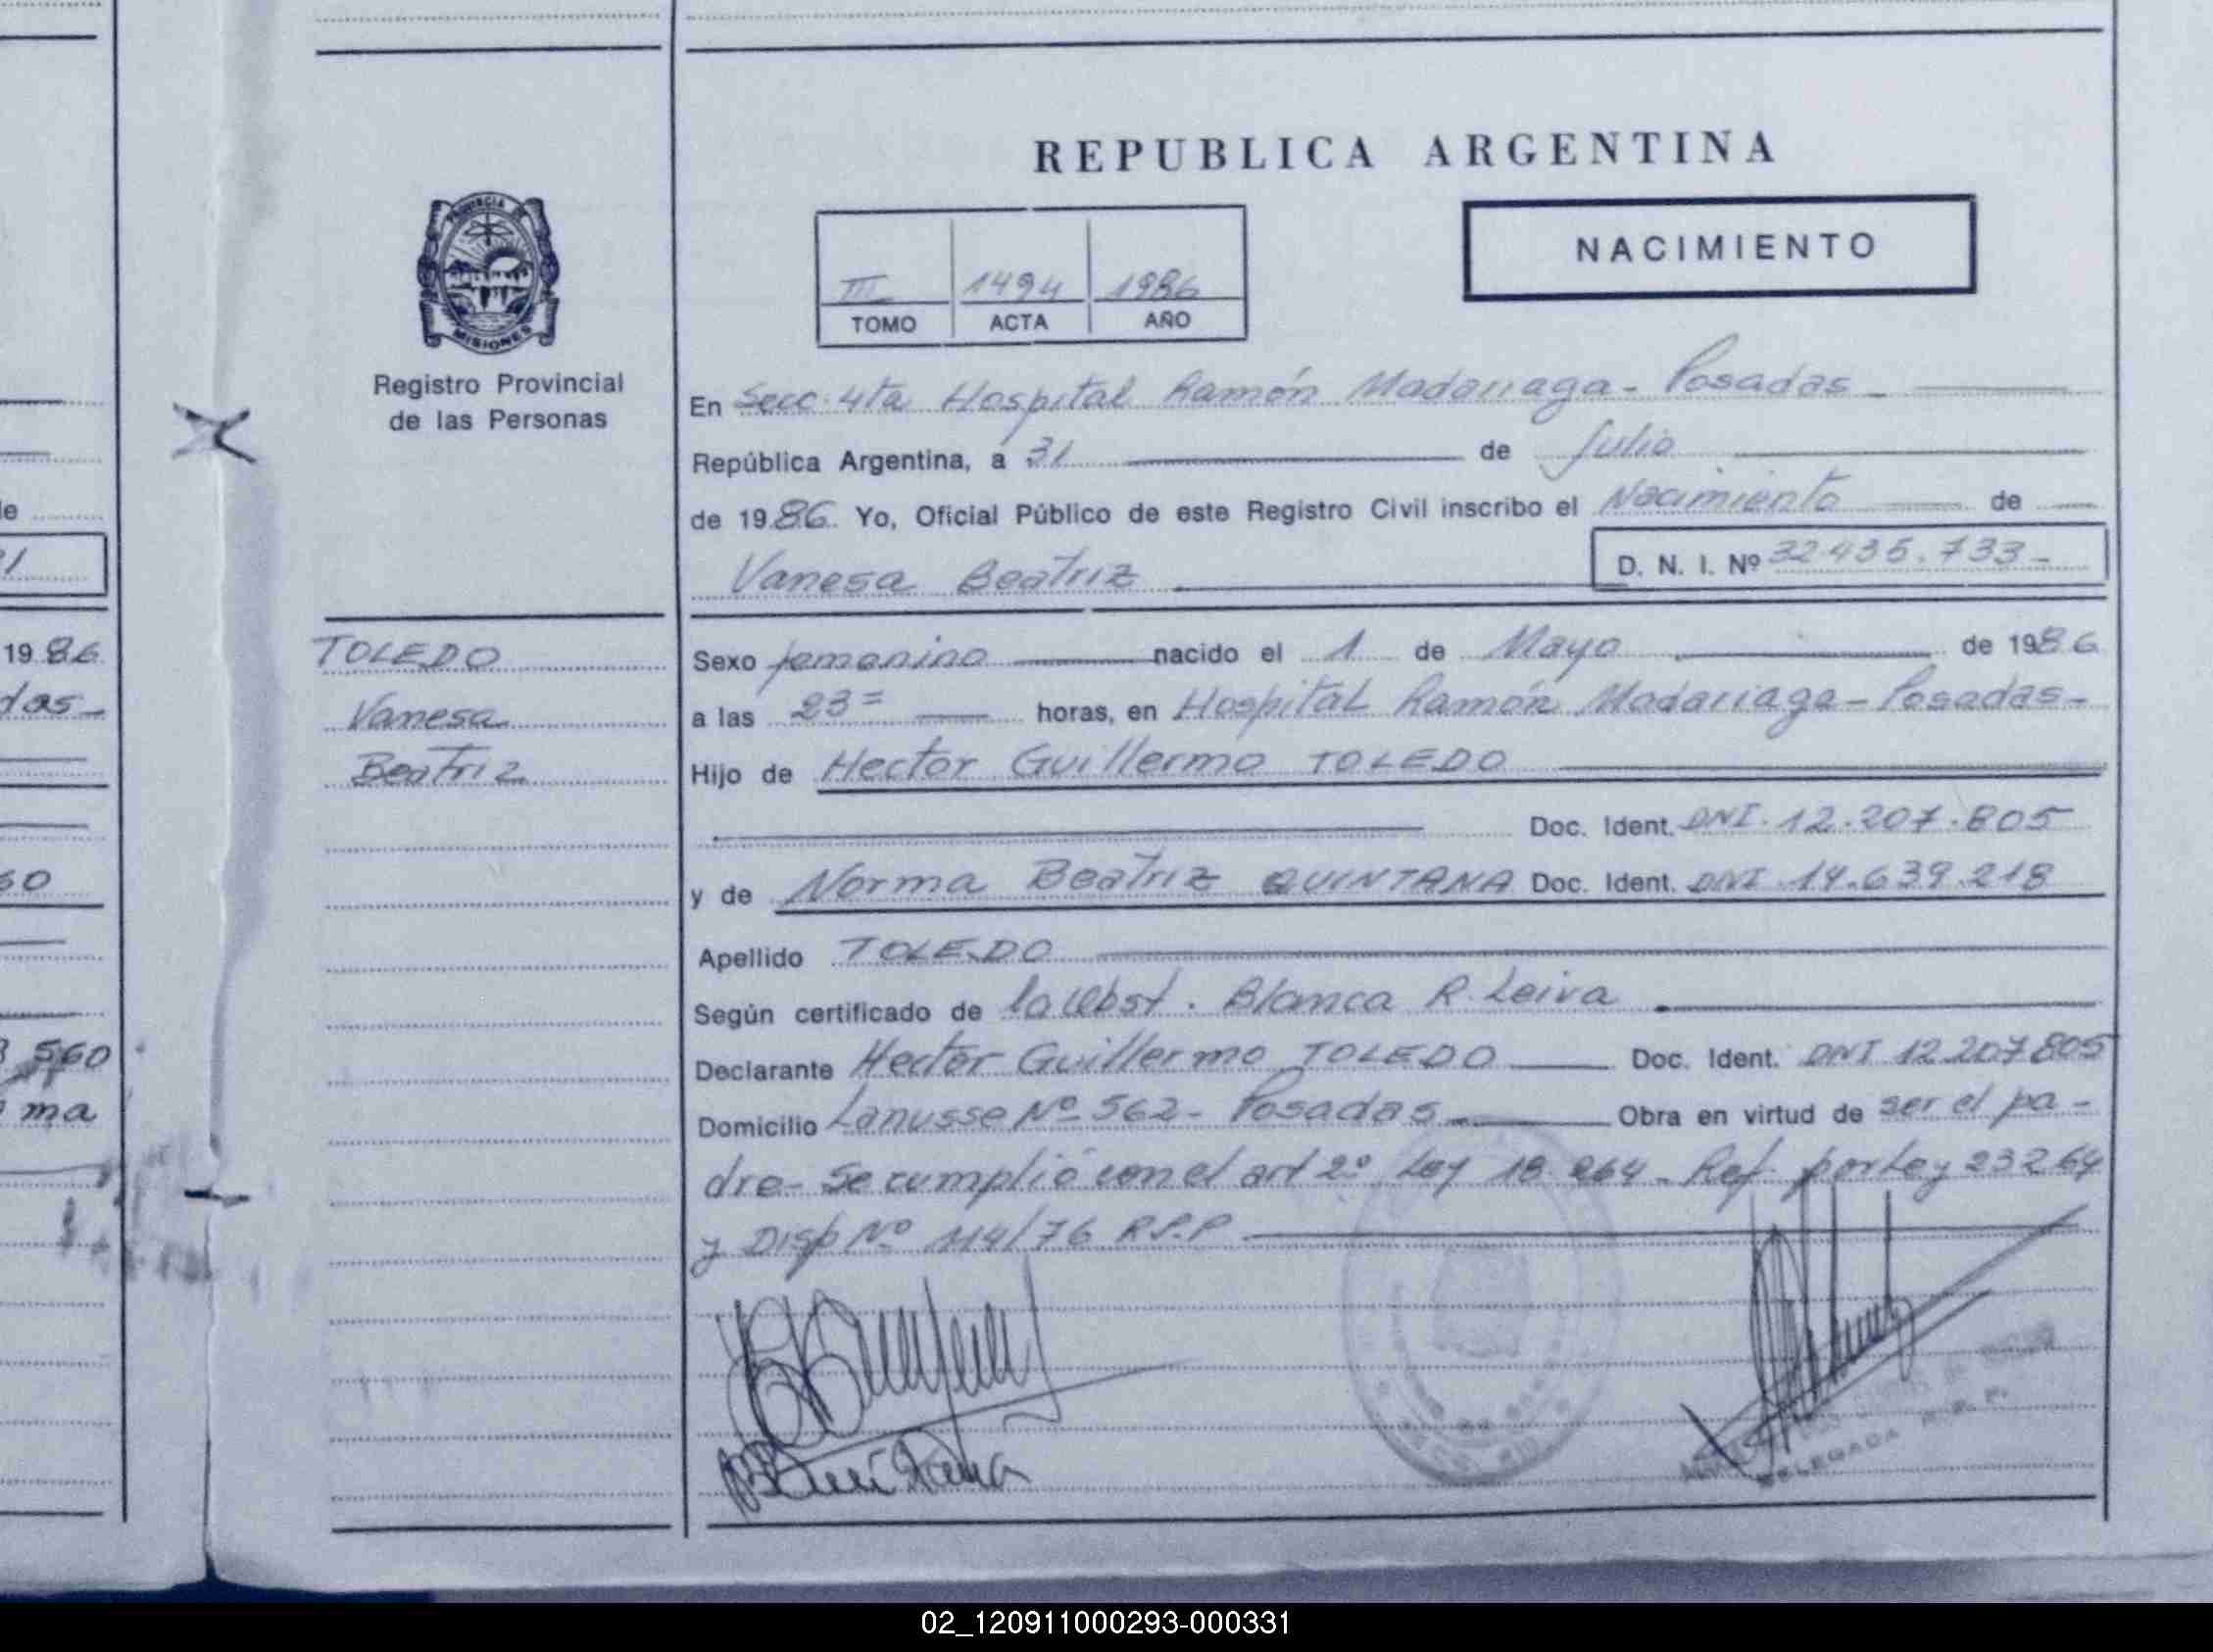 REPUBLICA ARGENTINA
NACIMIENTO
III 1494 1986
TOMO ACTA AÑO
PROVINCIA DE
MISIONES
Registro Provincial
de las Personas
En Secc. 4ta Hospital Ramón Madariaga - Posadas -
República Argentina, a 31 de Julio
de 1986. Yo, Oficial Público de este Registro Civil inscribo el Nacimiento de
Vanesa Beatriz D. N. I. Nº 32.435.733-
TOLEDO
Vanesa
Beatriz
Sexo femenino nacido el 1 de Mayo de 1986
a las 23= horas, en Hospital Ramón Madariaga - Posadas -
Hijo de Hector Guillermo TOLEDO
Doc. Ident. DNI. 12.207.805
y de Norma Beatriz QUINTANA Doc. Ident. DNI 14.639.218
Apellido TOLEDO
Según certificado de la Obst. Blanca R. Leiva
Declarante Hector Guillermo TOLEDO Doc. Ident. DNI 12.207.805
Domicilio Lanusse Nº 562 - Posadas Obra en virtud de ser el pa-
dre - Se cumplió con el art 2º Ley 18.264 - Ref. por Ley 23264
y Disp Nº 114/76 R.P.P
DELEGADA R. P. P.
e
1
19 86
das -
60
560
ma
02_120911000293-000331